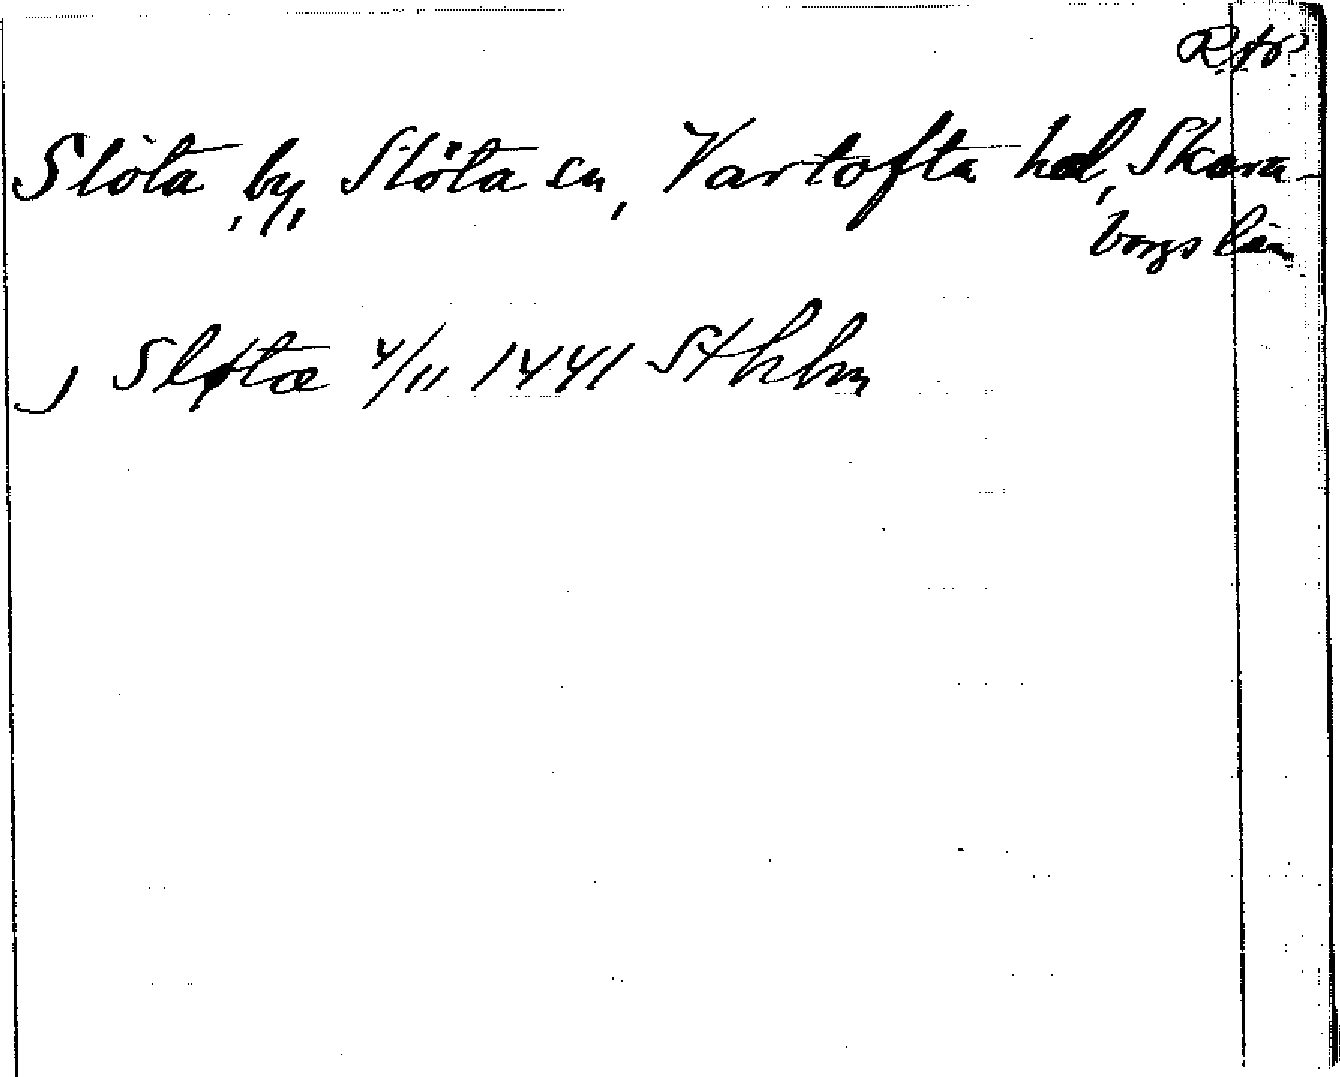 Slöta, by, Slöta sn, Vartofta hd, Skara-
borgs län
J Sløtæ 4/11 1441 Sthlm